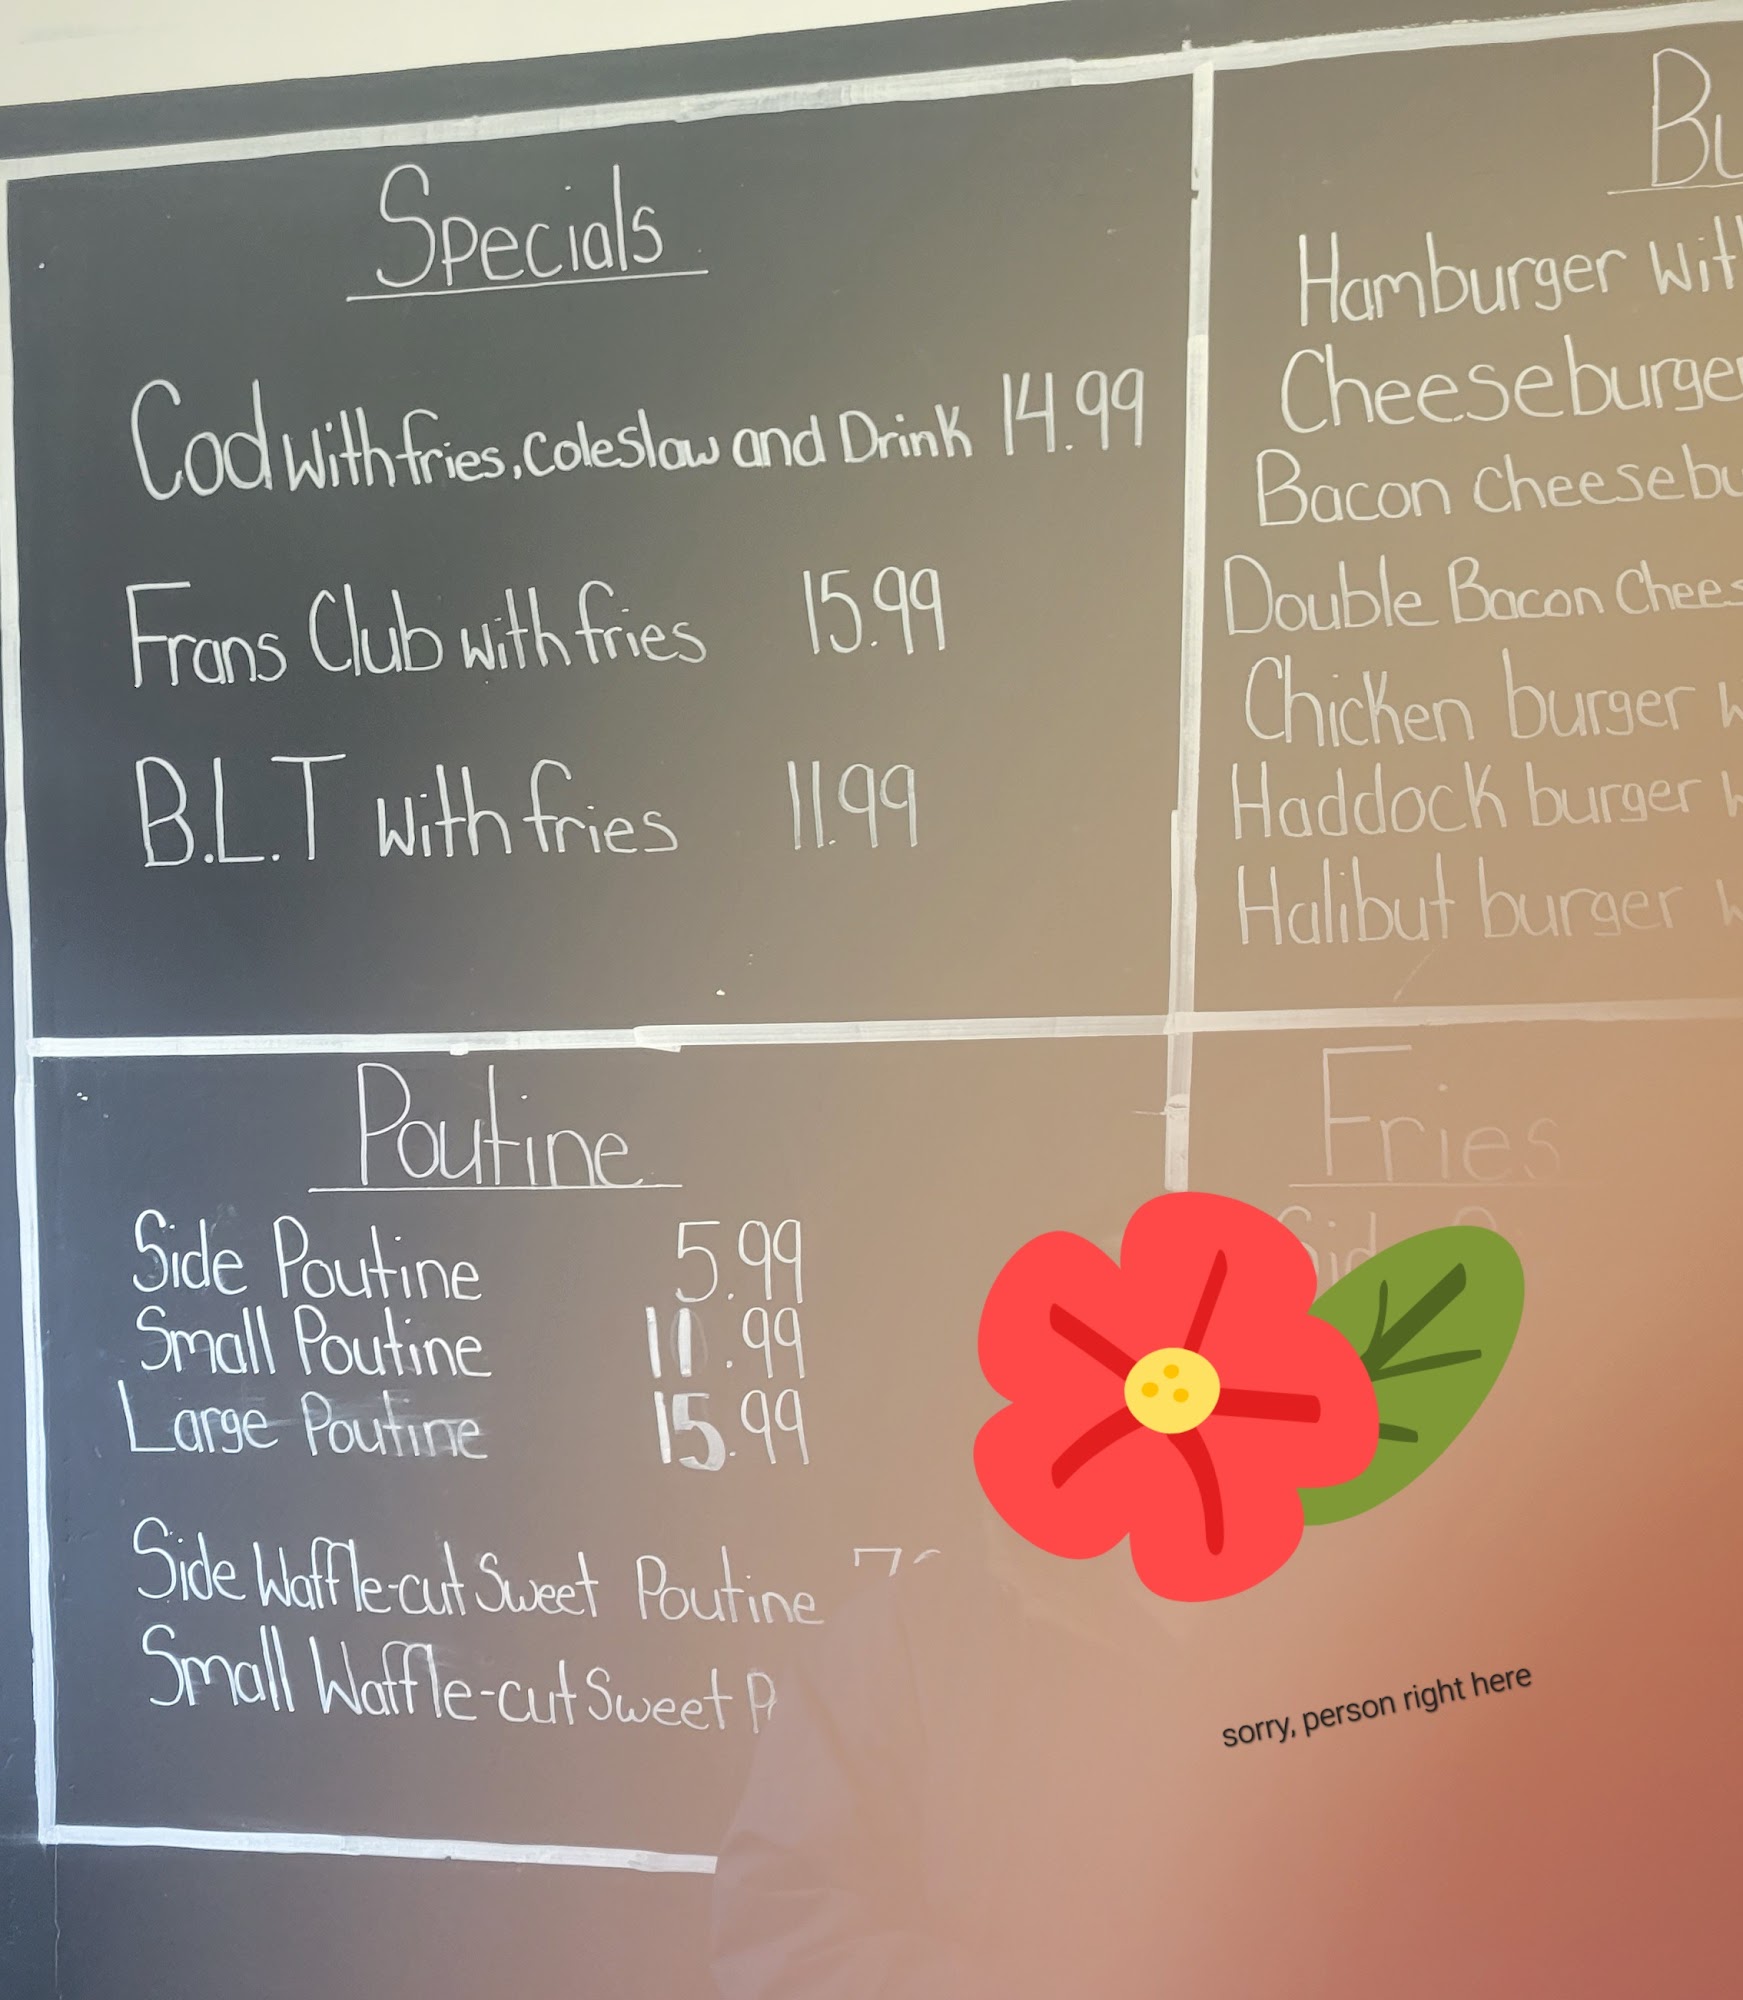 Specials
Cod with fries, Coleslaw and Drink 14.99
Frans Club with fries 15.99
B.L.T with fries 11.99
Hamburger
Cheeseburger
Bacon
Double Bacon
Chicken burger
Haddock burger
Halibut burger
Poutine
Side Poutine 5.99
Small Poutine 11.99
Large Poutine 15.99
Side Waffle-cut Sweet Poutine
Small Waffle-cut Sweet
Fries
sorry, person right here